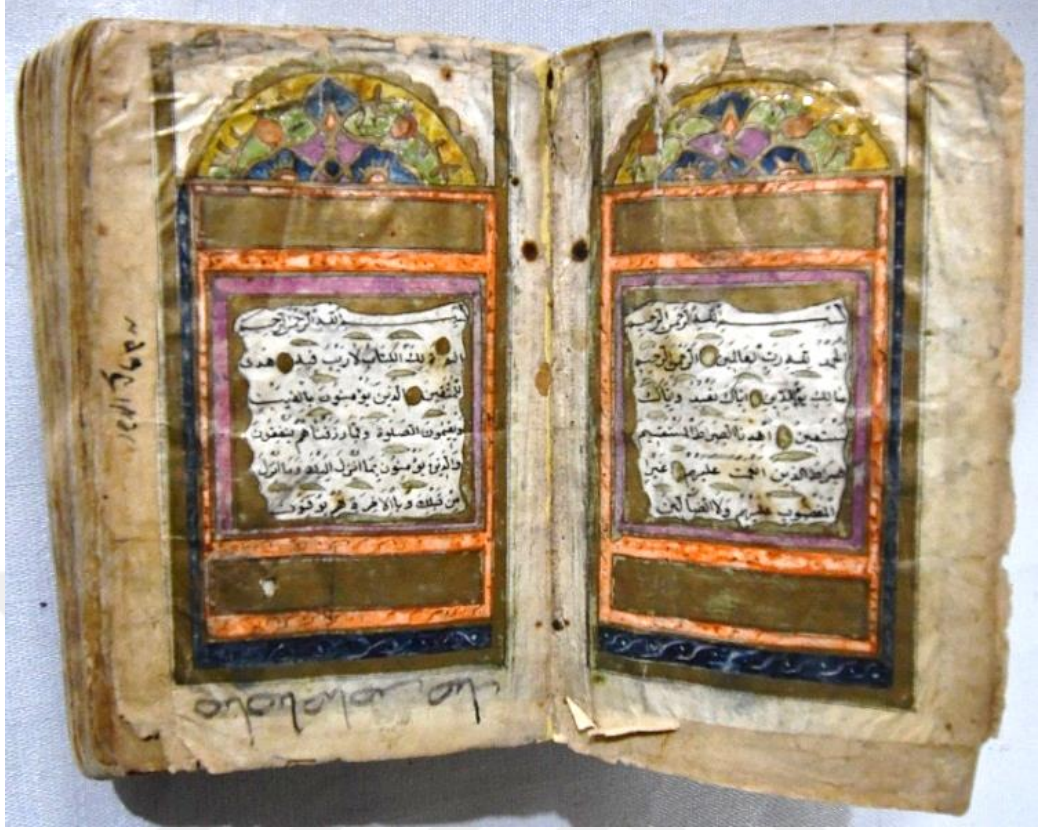 بسم الله الرحمن الرحيم
الحمد لله رب العالمين الرحمن الرحيم
مالك يوم الدين اياك نعبد وياك
نستعين اهدنا الصراط المستقيم
صراط الذين انعمت عليهم غير
المغضوب عليهم ولا الضالين
بسم الله الرحمن الرحيم
الم ذلك الكتاب لاريب فيه هدى
للمتقين الذين يؤمنون بالغيب
ويقيمون الصلوة ومما رزقناهم ينفقون
والذين يؤمنون بما انزل اليك وما انزل
من قبلك وبالاخرة وهم يوقنون